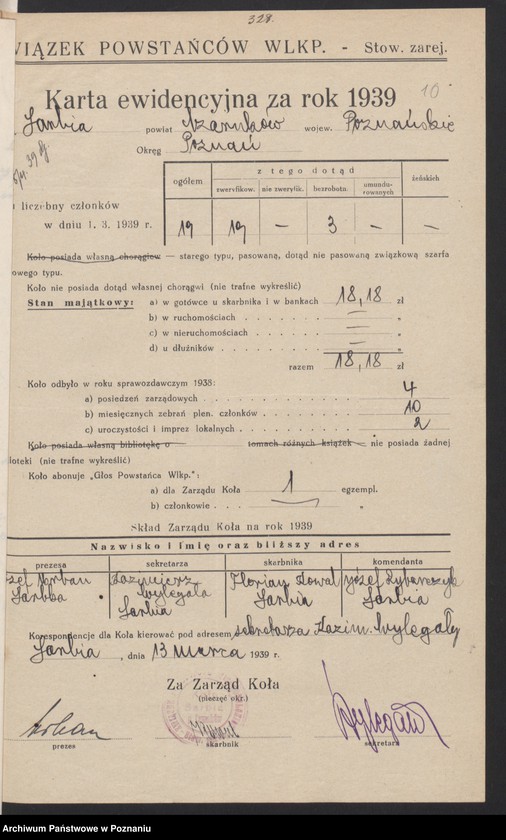 328.
WIĄZEK POWSTAŃCÓW WLKP. - Stow. zarej.
Karta ewidencyjna za rok 1939 10
Sarbia powiat Czarnków wojew. Poznańskie
Okręg Poznań
ogółem z tego dotąd żeńskich
zweryfikow. nie zweryfik. bezrobotn. umundurowanych
liczebny członków
w dniu 1. 3. 1939 r. 19 19 — 3 — —
Koło posiada własną chorągiew — starego typu, pasowaną, dotąd nie pasowaną związkową szarfą
owego typu.
Koło nie posiada dotąd własnej chorągwi (nie trafne wykreślić)
Stan majątkowy: a) w gotówce u skarbnika i w bankach 18,18 zł
b) w ruchomościach — „
c) w nieruchomościach — „
d) u dłużników — „
razem 18,18 zł
Koło odbyło w roku sprawozdawczym 1938:
a) posiedzeń zarządowych 4
b) miesięcznych zebrań plen. członków 10
c) uroczystości i imprez lokalnych 2
Koło posiada własną bibliotekę o tomach różnych książek — nie posiada żadnej
lioteki (nie trafne wykreślić)
Koło abonuje „Głos Powstańca Wlkp.":
a) dla Zarządu Koła 1 egzempl.
b) członkowie
Skład Zarządu Koła na rok 1939
Nazwisko i imię oraz bliższy adres
prezesa sekretarza skarbnika komendanta
Kazimierz Florian Józef Rybarczyk
Wylegała
Sarbia Sarbia Sarbia Sarbia
Korespondencje dla Koła kierować pod adresem sekretarza Kazim. Wylegały
Sarbia, dnia 13 marca 1939 r.
Za Zarząd Koła
(pieczęć okr.)
Wylegała
prezes skarbnik sekretarz
Archiwum Państwowe w Poznaniu